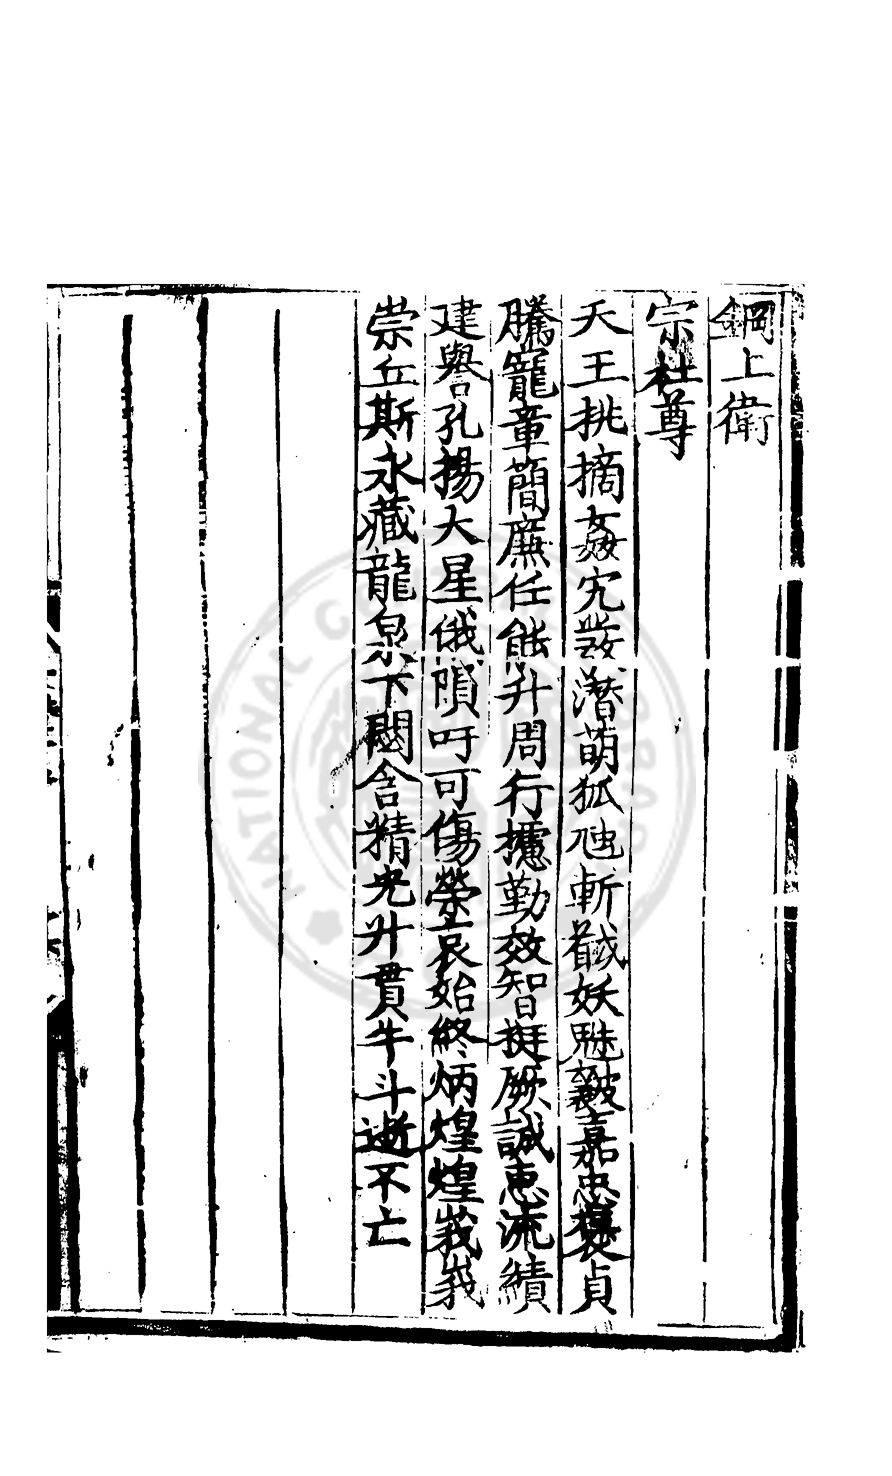 鋼上衛
宗社尊
天王挑摘姦宄發潛萌狐虺斬馘妖魅皷嘉忠襃貞
騰寵章簡廉任能升周行攄勤效智挺厥誠惠流績
建譽孔揚大星俄隕吁可傷榮哀始終炳煌煌峩峩
崇丘斯永藏龍泉下閟含精光升貫牛斗逝不亡
NATIONAL